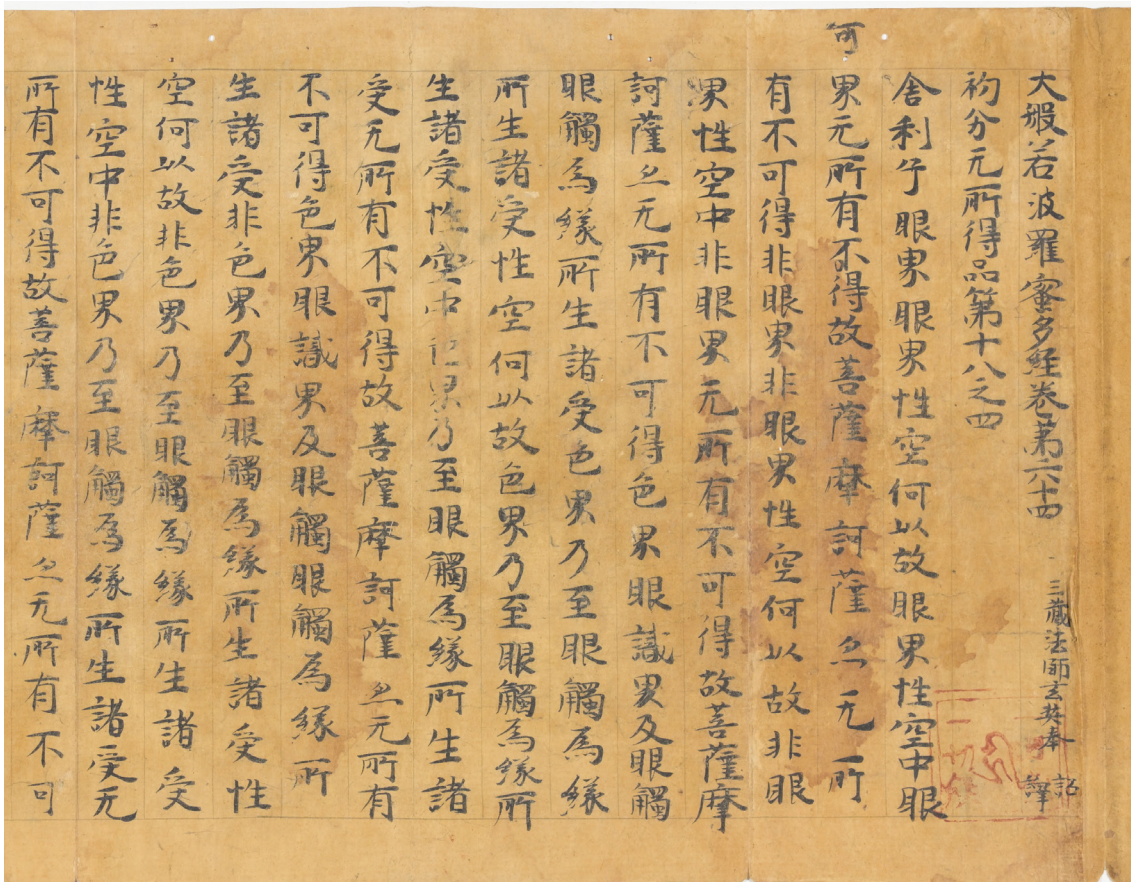 大般若波羅蜜多經卷第六十四
三藏法師玄奘奉 詔譯
初分无所得品第十八之四
舍利子眼界眼界性空何以故眼界性空中眼
界无所有不得故菩薩摩訶薩亦无所
可
有不可得非眼界非眼界性空何以故非眼
界性空中非眼界无所有不可得故菩薩摩
訶薩亦无所有不可得色界眼識界及眼觸
眼觸為緣所生諸受色界乃至眼觸為緣
所生諸受性空何以故色界乃至眼觸為緣所
生諸受性空中色界乃至眼觸為緣所生諸
受无所有不可得故菩薩摩訶薩亦无所有
不可得色界眼識界及眼觸眼觸為緣所
生諸受非色界乃至眼觸為緣所生諸受性
空何以故非色界乃至眼觸為緣所生諸受
性空中非色界乃至眼觸為緣所生諸受无
所有不可得故菩薩摩訶薩亦无所有不可